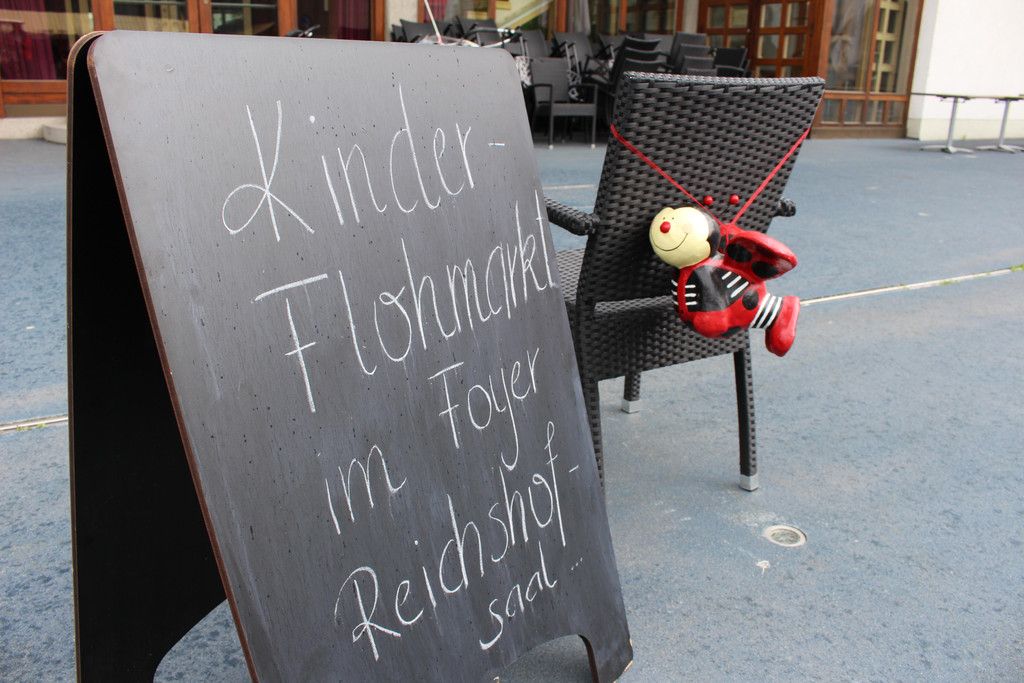 Kinder-
Flohmarkt
im Foyer
Reichshof-
saal...